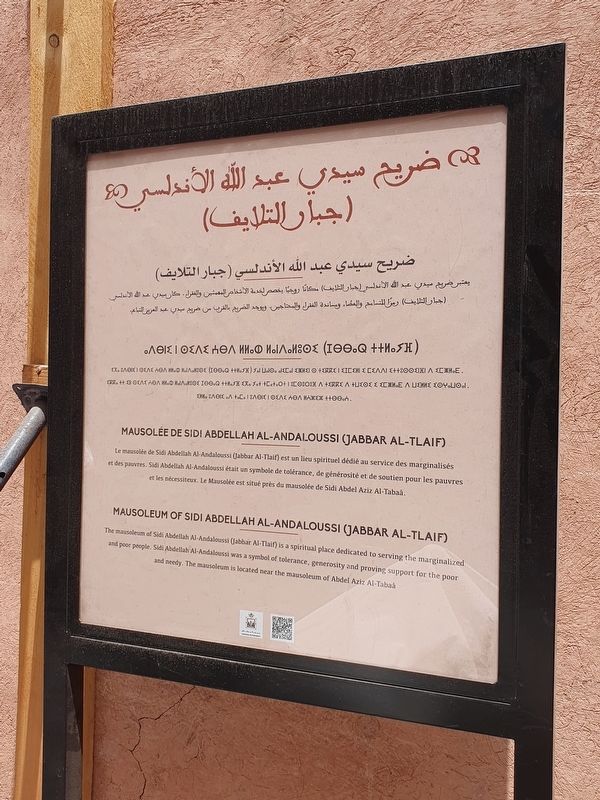 ضريح سيدي عبد الله الأندلسي
(جبار التلايف)
ضريح سيدي عبد الله الأندلسي (جبار التلايف)
يعتبر ضريح سيدي عبد الله الأندلسي (جبار التلايف) مكانًا روحيًا يخصص لخدمة الأشخاص المهمشين والفقراء. كان سيدي عبد الله الأندلسي
(جبار التلايف) رمزًا للتسامح والعطاء، ومساندة الفقراء والمحتاجين. ويوجد الضريح بالقرب من ضريح سيدي عبد العزيز التباع.
ⴰⴷⴱⵏⵉ ⵏ ⵙⵉⴷⵉ ⵄⴱⴷ ⵍⵍⴰⵀ ⵍⴰⵏⴷⴰⵍⵓⵙⵉ (ⵊⴱⴱⴰⵔ ⵜⵜⵍⴰⵢⴼ)
MAUSOLÉE DE SIDI ABDELLAH AL-ANDALOUSSI (JABBAR AL-TLAIF)
Le mausolée de Sidi Abdellah Al-Andaloussi (Jabbar Al-Tlaif) est un lieu spirituel dédié au service des marginalisés
et des pauvres. Sidi Abdellah Al-Andaloussi était un symbole de tolérance, de générosité et de soutien pour les pauvres
et les nécessiteux. Le Mausolée est situé près du mausolée de Sidi Abdel Aziz Al-Tabaâ.
MAUSOLEUM OF SIDI ABDELLAH AL-ANDALOUSSI (JABBAR AL-TLAIF)
The mausoleum of Sidi Abdellah Al-Andaloussi (Jabbar Al-Tlaif) is a spiritual place dedicated to serving the marginalized
and poor people. Sidi Abdellah Al-Andaloussi was a symbol of tolerance, generosity and proving support for the poor
and needy. The mausoleum is located near the mausoleum of Abdel Aziz Al-Tabaâ